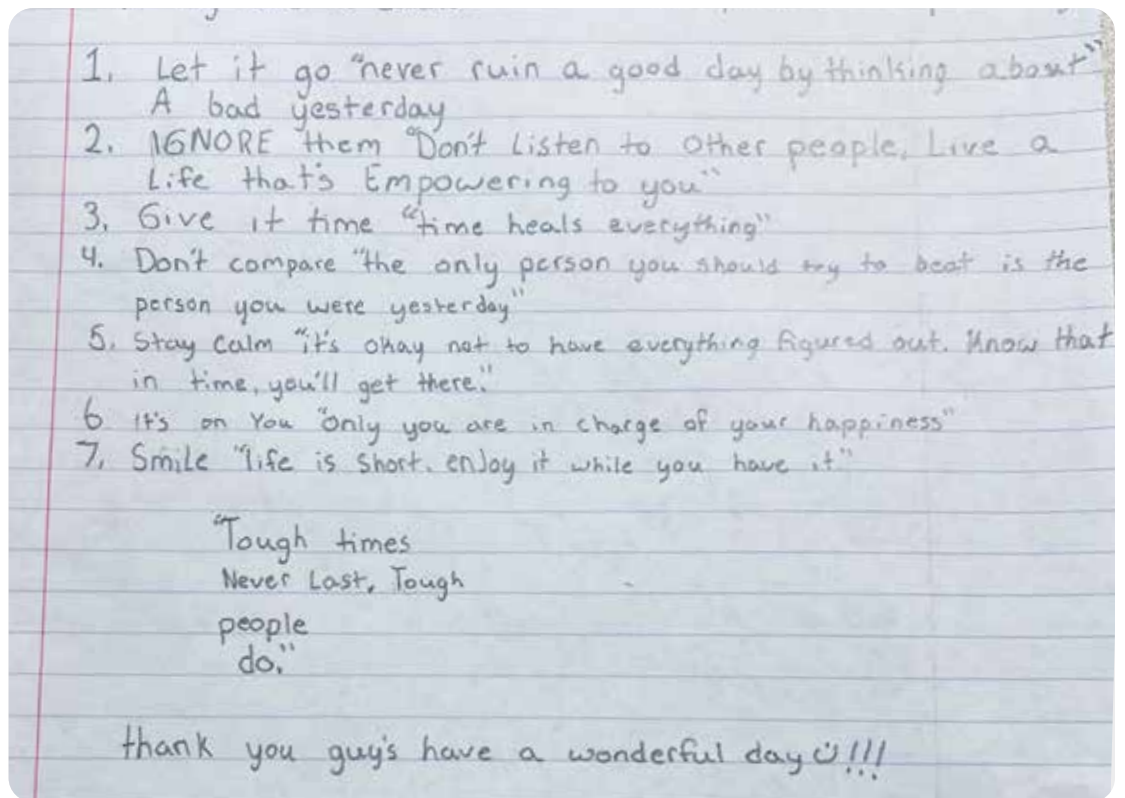 1. Let it go "never ruin a good day by thinking about"
A bad yesterday
2. IGNORE them "Don't Listen to Other people. Live a
Life that's Empowering to you"
3. Give it time "time heals everything"
4. Don't compare "the only person you should try to beat is the
person you were yesterday"
5. Stay Calm "it's okay not to have everything figured out. Know that
in time, you'll get there."
6 It's on You "only you are in charge of your happiness"
7. Smile "life is Short. enjoy it while you have it"
"Tough times
Never Last, Tough
people
do."
thank you guy's have a wonderful day☺!!!